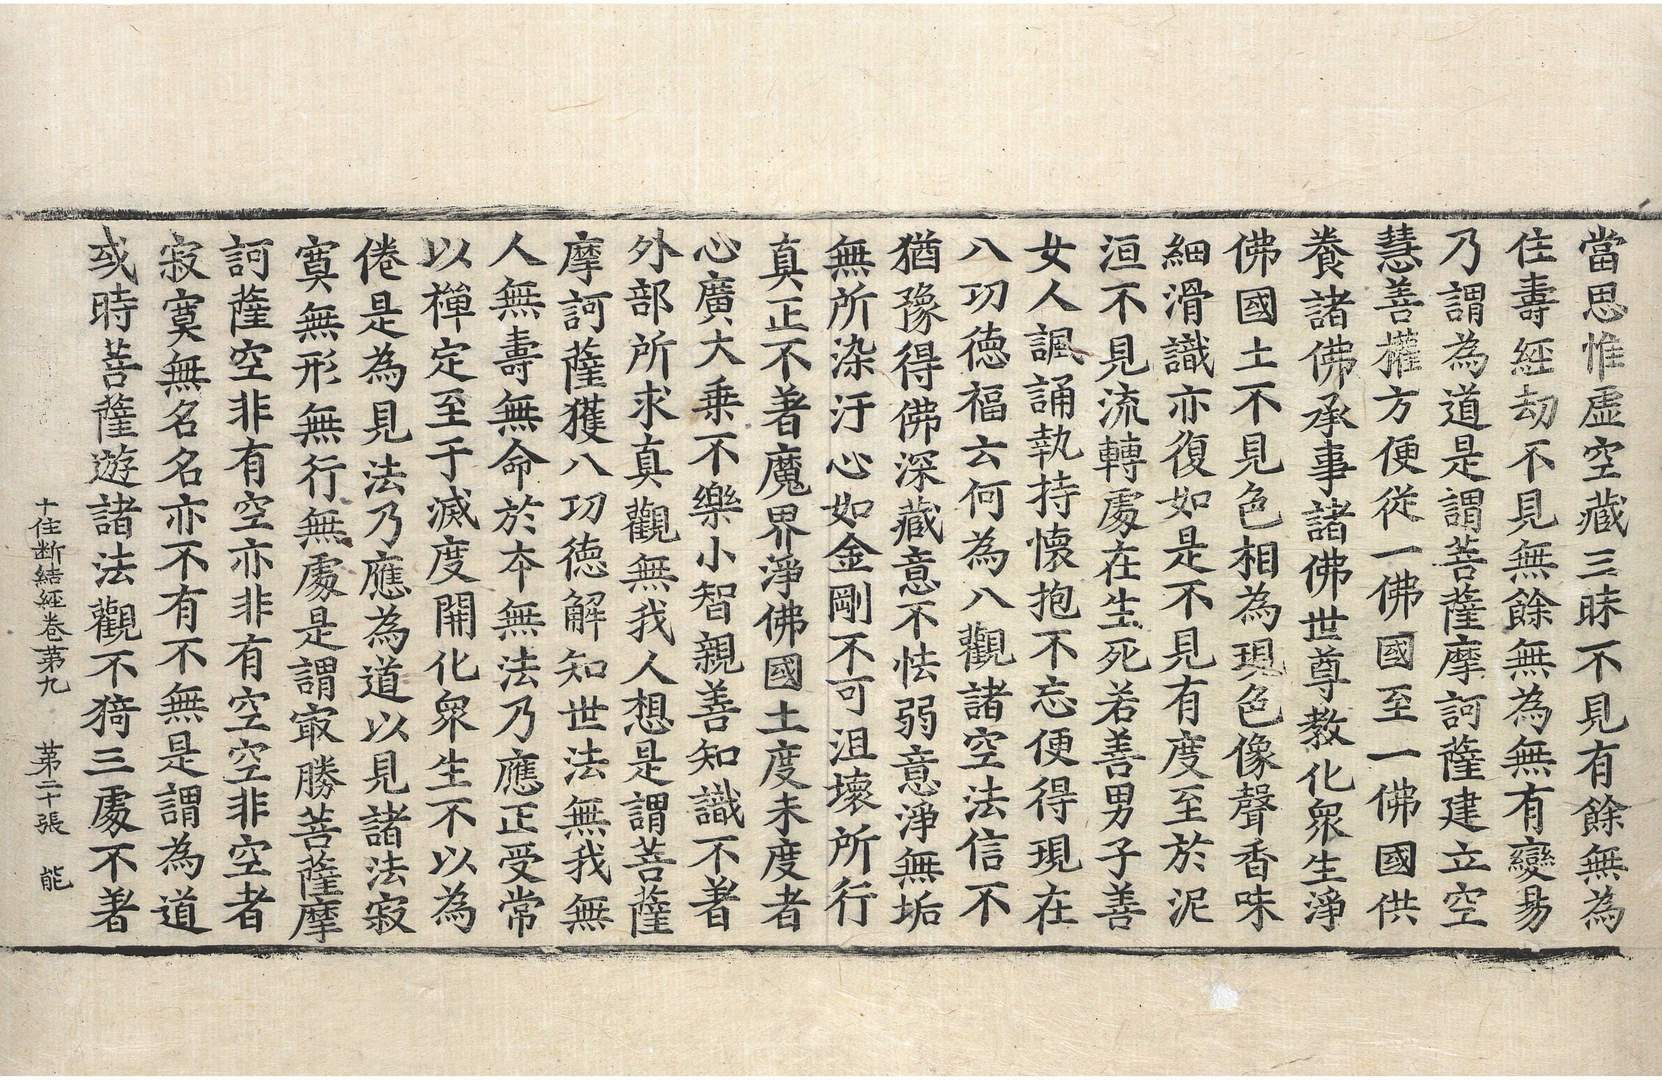 當思惟虛空藏三昧不見有餘無為
住壽經劫不見無餘無為無有變易
乃謂為道是謂菩薩摩訶薩建立空
慧善權方便從一佛國至一佛國供
養諸佛承事諸佛世尊教化眾生淨
佛國土不見色相為現色像聲香味
細滑識亦復如是不見有度至於泥
洹不見流轉處在生死若善男子善
女人諷誦執持懷抱不忘便得現在
八功德福云何為八觀諸空法信不
猶豫得佛深藏意不怯弱意淨無垢
無所染汙心如金剛不可沮壞所行
真正不著魔界淨佛國土度未度者
心廣大乘不樂小智親善知識不著
外部所求真觀無我人想是謂菩薩
摩訶薩獲八功德解知世法無我無
人無壽無命於本無法乃應正受常
以禪定至于滅度開化眾生不以為
倦是為見法乃應為道以見諸法寂
寞無形無行無處是謂寂勝菩薩摩
訶薩空非有空亦非有空空非空者
寂寞無名名亦不有不無是謂為道
或時菩薩遊諸法觀不猗三處不著
十住斷結經卷第九　第二十張　能